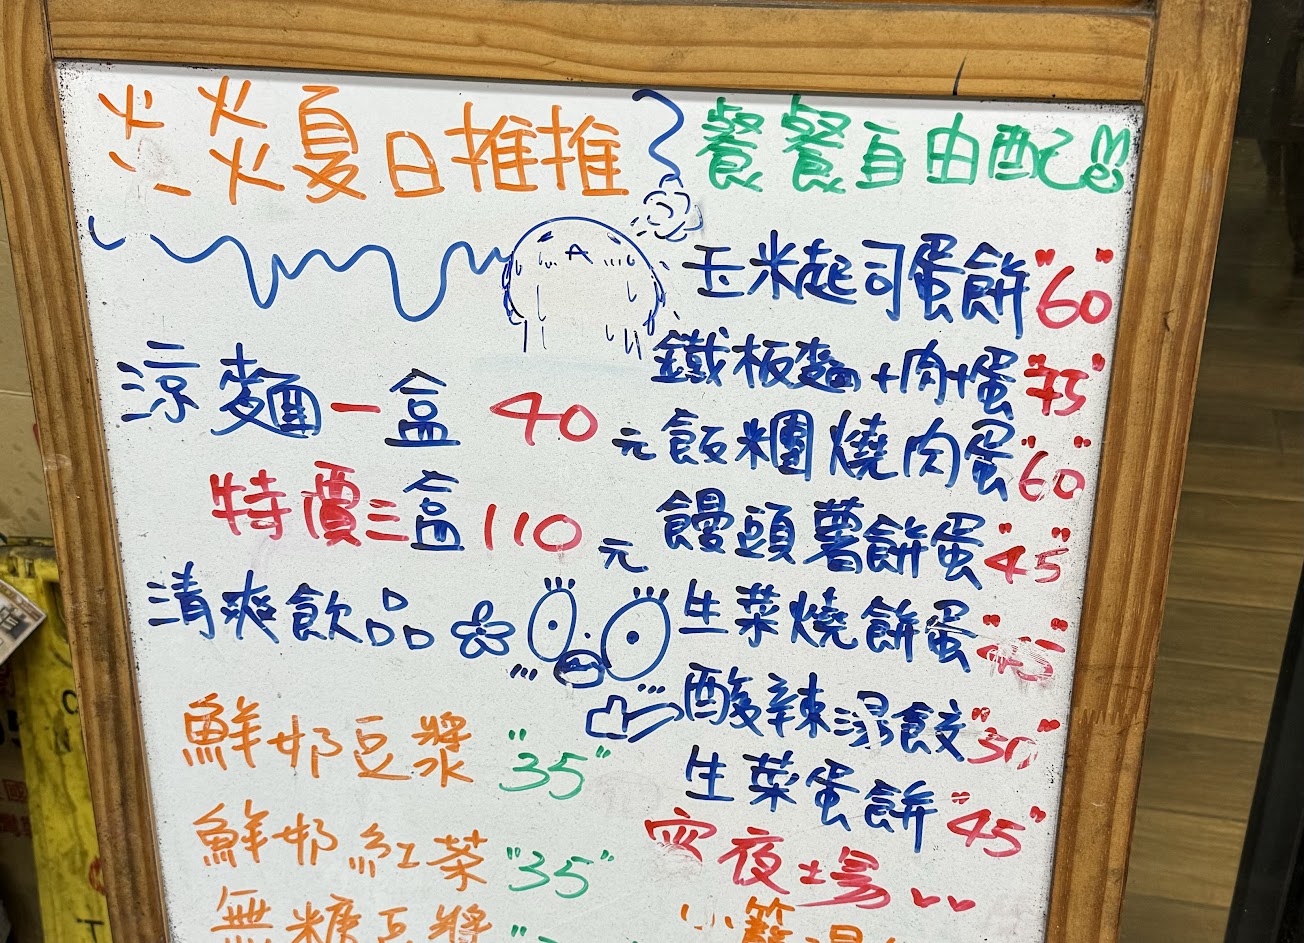 炎炎夏日推推
涼麵一盒 40元
特價三盒 110元
清爽飲品
鮮奶豆漿 "35"
鮮奶紅茶 "35"
無糖豆漿
餐餐自由配
玉米起司蛋餅 "60"
鐵板麵+肉+蛋 "75"
飯糰燒肉蛋 "60"
饅頭薯餅蛋 "45"
生菜燒餅蛋 "45"
酸辣湯餃 "50"
生菜蛋餅 "45"
宵夜場
小籠湯